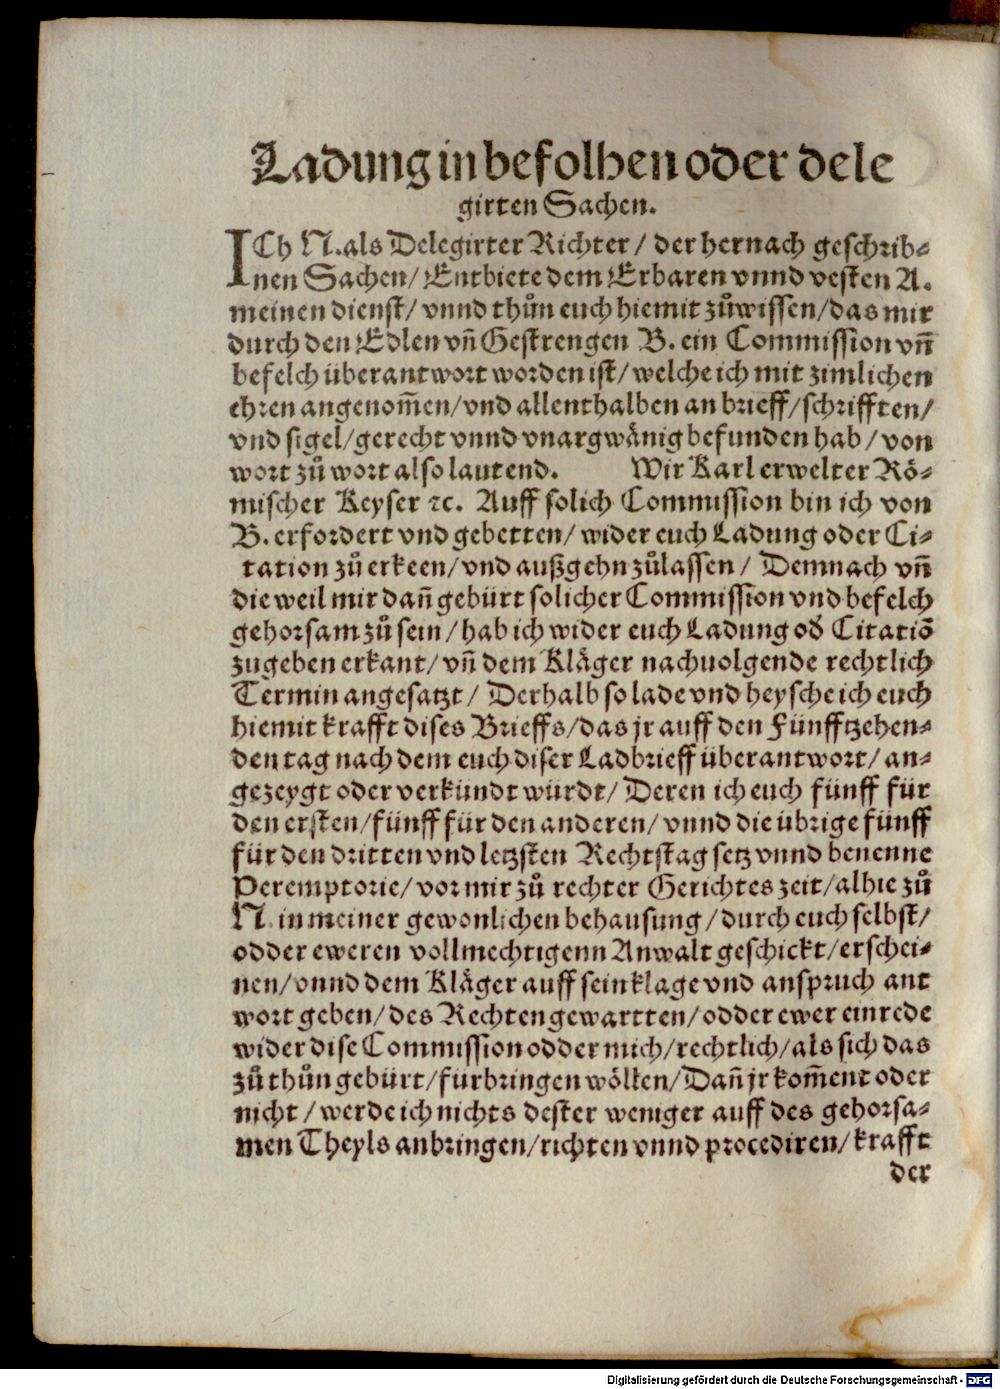 Ladung in befolhen oder dele
girten Sachen.
ICh N. als Delegirter Richter / der hernach geschrib⸗
nen Sachen / Entbiete dem Erbaren vnnd vesten A.
meinen dienst / vnnd thůn euch hiemit zůwissen / das mir
durch den Edlen vñ Gestrengen B. ein Commission vñ
befelch überantwort worden ist / welche ich mit zimlichen
ehren angenom̃en / vnd allenthalben an brieff / schrifften /
vnd sigel / gerecht vnnd vnargwänig befunden hab / von
wort zů wort also lautend. Wir Karl erwelter Rö⸗
mischer Keyser ꝛc. Auff solich Commission bin ich von
B. erfordert vnd gebetten / wider euch Ladung oder Ci⸗
tation zů erkeen / vnd außgehn zůlassen / Demnach vñ
die weil mir dañ gebürt solicher Commission vnd befelch
gehorsam zů sein / hab ich wider euch Ladung oď Citatiō
zugeben erkant / vñ dem Kläger nachuolgende rechtlich
Termin angesatzt / Derhalb so lade vnd heysche ich euch
hiemit krafft dises Brieffs / das jr auff den Fünfftzehen⸗
den tag nach dem euch diser Ladbrieff überantwort / an⸗
gezeygt oder verkündt würdt / Deren ich euch fünff für
den ersten / fünff für den anderen / vnnd die übrige fünff
für den dritten vnd letzsten Rechtstag setz vnnd benenne
Peremptorie / vor mir zů rechter Gerichtes zeit / alhie zů
N. in meiner gewonlichen behausung / durch euch selbst /
odder eweren vollmechtigenn Anwalt geschickt / erschei⸗
nen / vnnd dem Kläger auff sein klage vnd anspruch ant
wort geben / des Rechten gewartten / odder ewer einrede
wider dise Commission odder mich / rechtlich / als sich das
zů thůn gebürt / fürbringen wöllen / Dañ jr kom̃ent oder
nicht / werde ich nichts dester weniger auff des gehorsa⸗
men Theyls anbringen / richten vnnd procediren / krafft
der
Digitalisierung gefördert durch die Deutsche Forschungsgemeinschaft - DFG